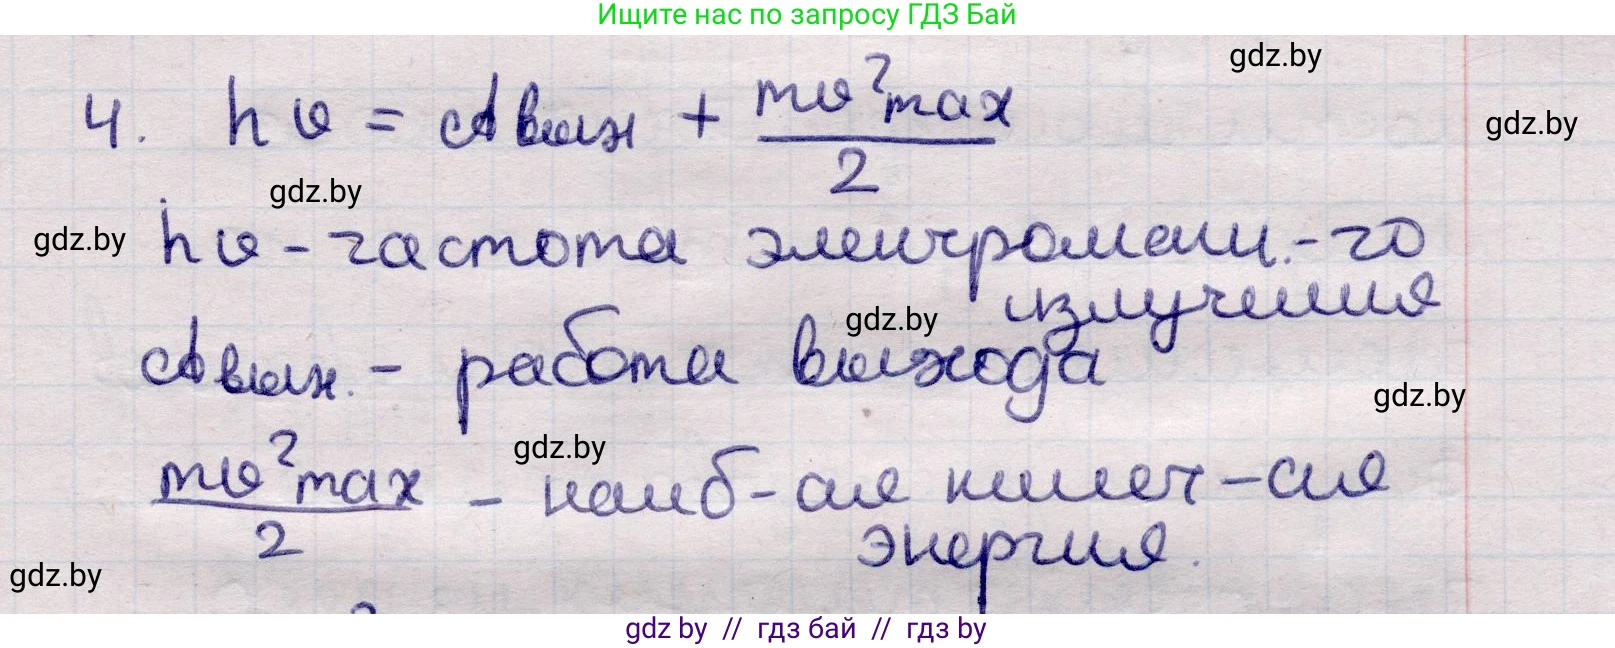 Ищите нас по запросу ГДЗ Бай
gdz.by
gdz.by
4. hυ = Aвых + mυ²max / 2
gdz.by
gdz.by
hυ - частота электромагн.-го
излучения
gdz.by
Aвых. - работа выхода
gdz.by
gdz.by
mυ²max / 2 - наиб-ая кинет-ая
энергия.
gdz.by
gdz by // гдз бай // гдз by